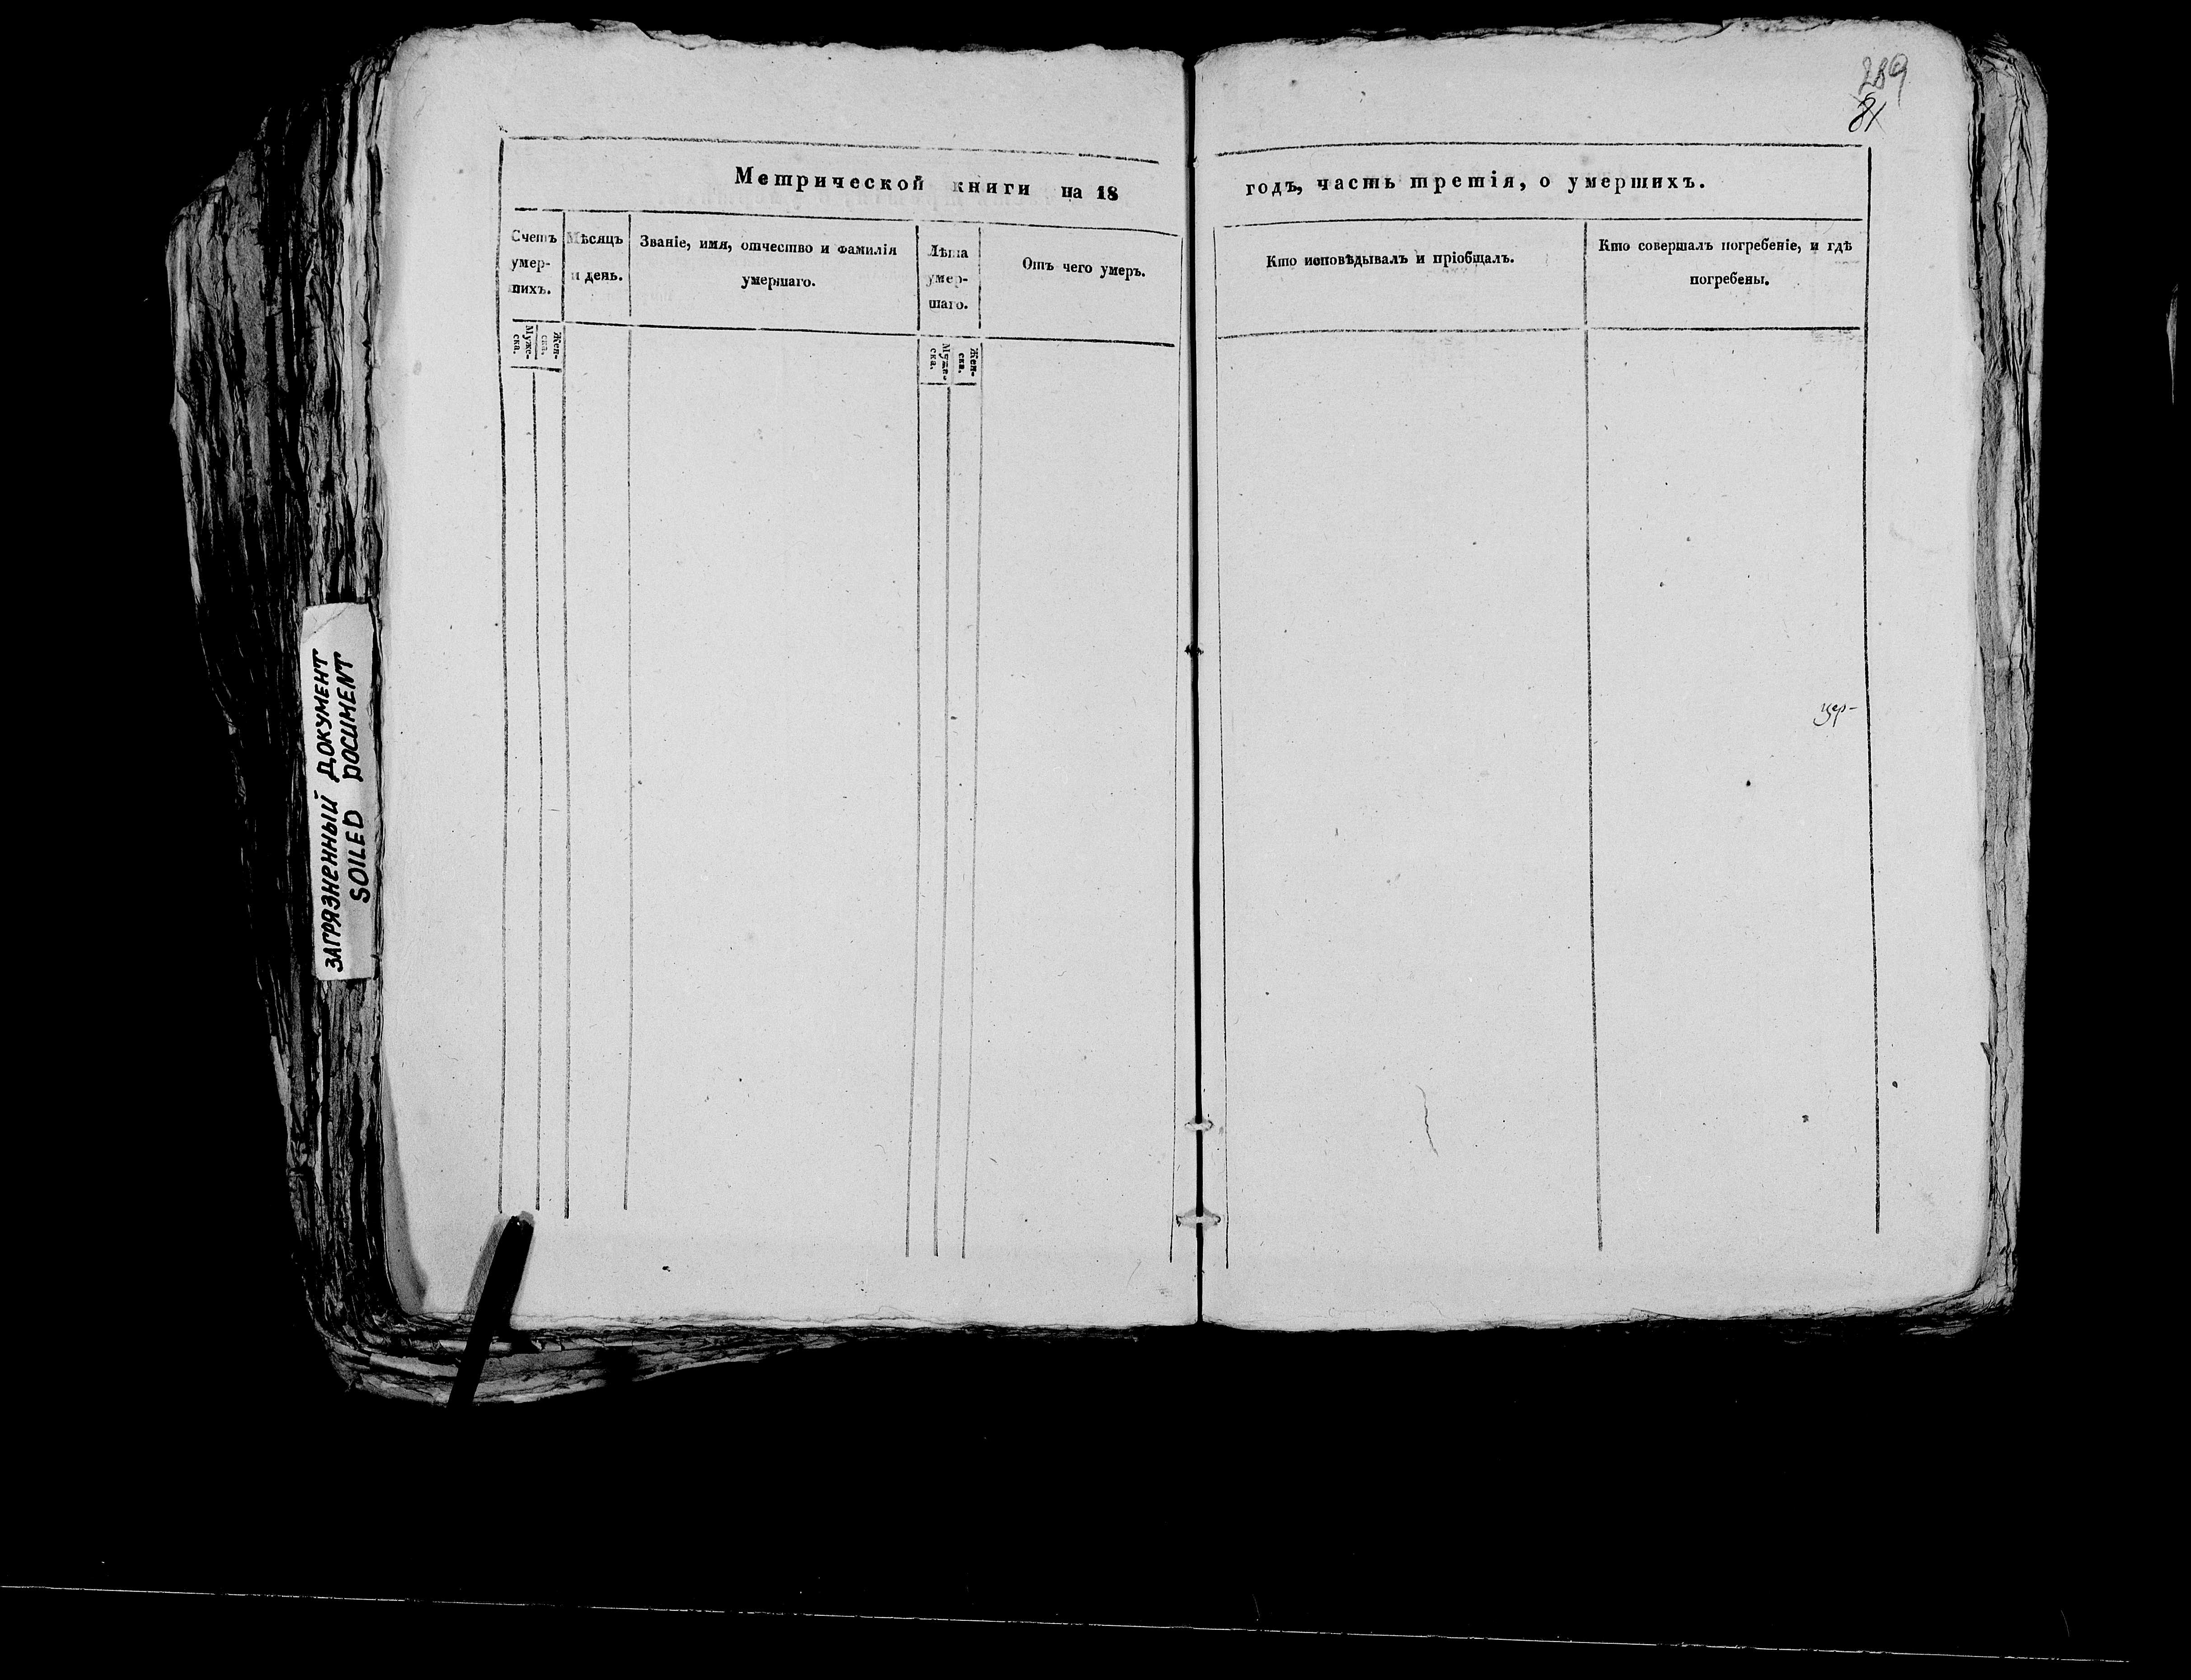 289
81
Метрической книги на 18 годъ, часть третія, о умершихъ.
Счетъ умер-шихъ.
Мѣсяцъ и день.
Званіе, имя, отчество и фамилія
умершаго.
Лѣта умер-шаго.
Отъ чего умеръ.
Кто исповѣдывалъ и пріобщалъ.
Кто совершалъ погребеніе, и гдѣ
погребены.
Муже-ска.
Жен-ска.
Муже-ска.
Жен-ска.
цер-
ЗАГРЯЗНЕННЫЙ ДОКУМЕНТ
SOILED DOCUMENT